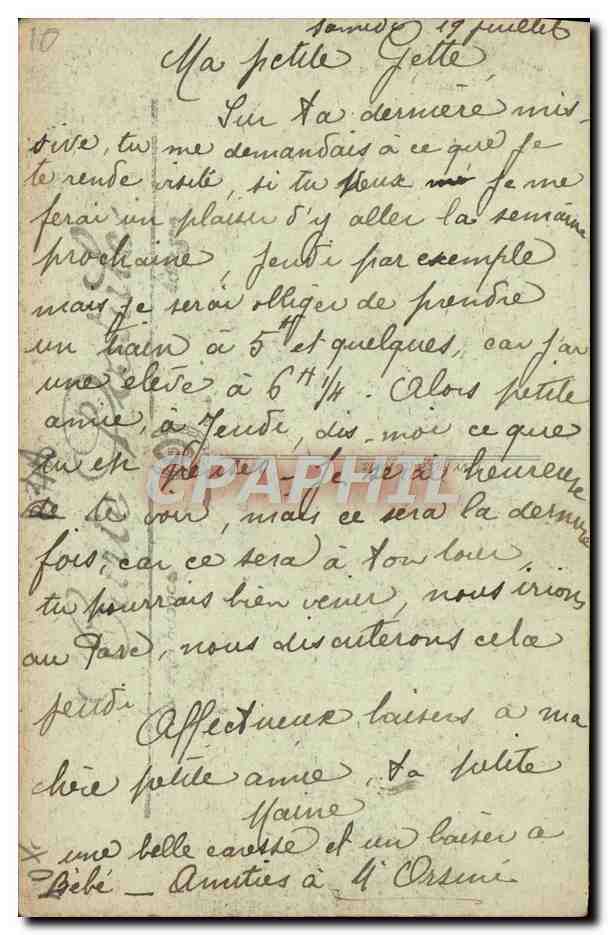 10
Samedi 19 juillet
Ma petite Gette,
Sur ta dernière mis-
sive, tu me demandais à ce que je
te rende visite, si tu veux je me
ferai un plaisir d'y aller la semaine
prochaine, Jeudi par exemple
mais je serai obliger de prendre
un train à 5H et quelques, car j'ai
une elève à 6H 1/4. Alors petite
amie, à Jeudi, dis-moi ce que
tu en penses - Je serai heureuse
de te voir, mais ce sera la dernière
fois, car ce sera à ton tour
tu pourrais bien venir, nous irions
au Parc, nous discuterons cela
jeudi
Affectueux baisers à ma
chère petite amie, ta petite
Maine
une belle caresse et un baiser à
Bébé - Amitiés à
Carte Postale
CPAPHIL